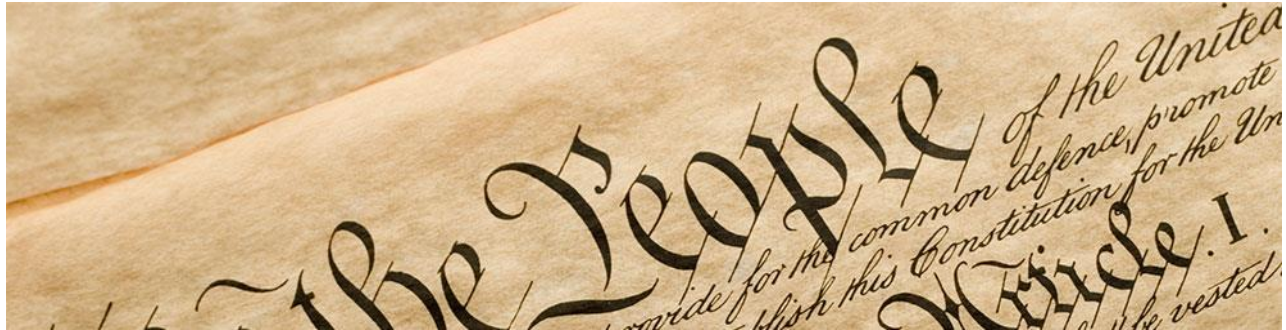 the People of the United
provide for the common defence, promote
this Constitution for the Un
Article. I.
be vested